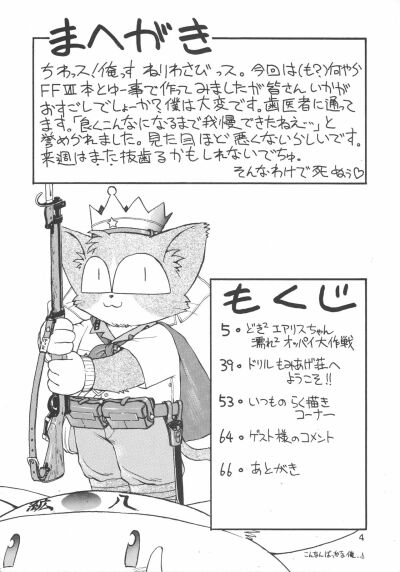 まへがき
ちわっス!俺っす ねりわさびっス。今回は(も?)何やか
FFⅦ本とゆー事で作ってみましたが皆さんいかが
おすごしでしょーか?僕は大変です。歯医者に通って
ます。「良くこんなになるまで我慢できたねえ…」と
誉められました。見た目ほど悪くないらしいです。
来週はまた抜歯るかもしれないでちゅ。
そんなわけで死ぬぅ♡
もくじ
5・どき² エアリスちゃん
濡れ² オッパイ大作戦
39・ドリルもみあげ荘へ
ようこそ!!
53・いつものらく描き
コーナー
64・ゲスト様のコメント
66・あとがき
4
八